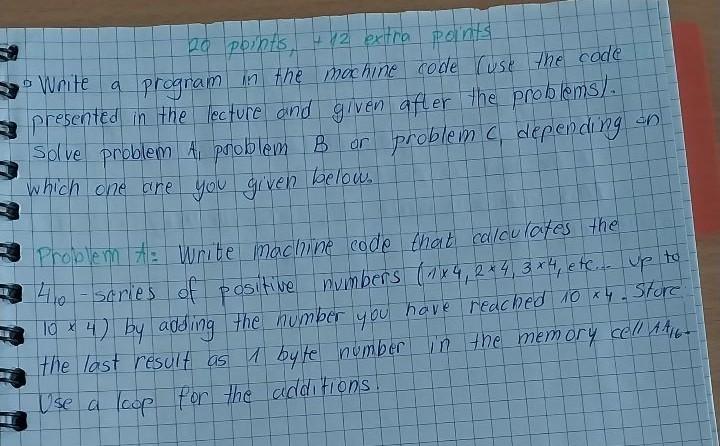 20 points, +12 extra points
Write a program in the machine code (use the code
presented in the lecture and given after the problems).
Solve problem A, problem B or problem C, depending on
which one are you given below.
Problem A: Write machine code that calculates the
4₁₀ - series of positive numbers (1x4, 2x4, 3x4, etc... up to
10 x 4) by adding the number you have reached 10 x 4. Store
the last result as 1 byte number in the memory cell AA₁₆.
Use a loop for the additions.